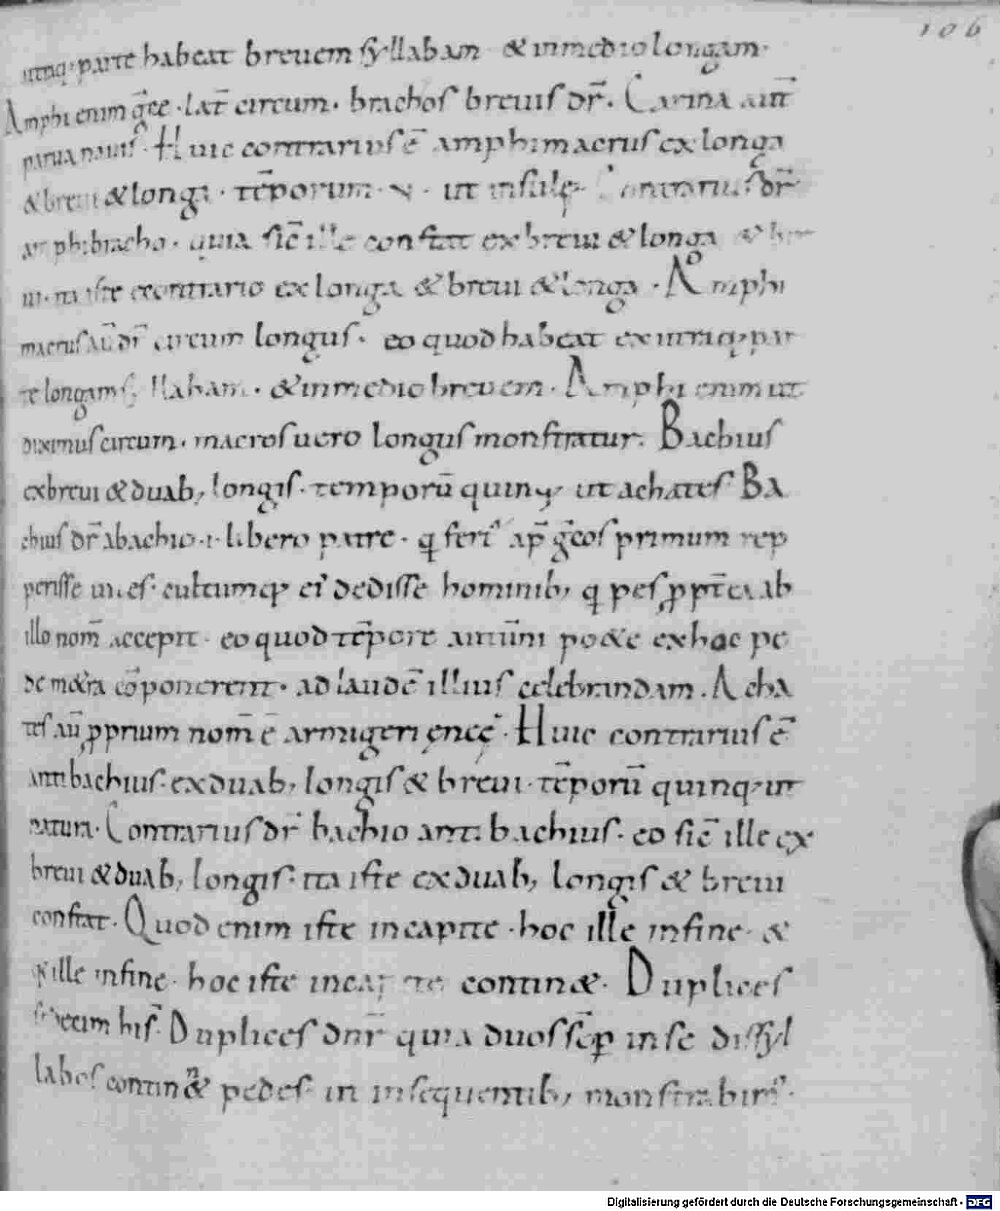 106
utraq; parte habeat breuem syllabam · & inmedio longam ·
Amphi enim gre͂ce · lat̄ circum · brachos breuis dr̄ · Carina aut̄
parua nauis · Huic contrarius ē amphimacrus ex longa
& breui & longa · tēporum · v · ut insulę · Contrarius dr̄
amphibracho · quia sic̄ ille constat ex breui & longa & bre
ui · ita iste econtrario ex longa & breui & longa · Amphi
macrus aū dr̄ circum longus · eo quod habeat ex utraq; par
te longam syllabam · & inmedio breuem · Amphi enim ut
diximus circum · macros uero longus monstratur · Bachius
ex breui & duab; longis · temporū quinq; ut achates Ba
chius dr̄ abachio · i · libero patre · q fert' ap̄ grecos primum rep
perisse uites · cultumq; ei' dedisse hominib; q pes ꝓpt̄ea ab
illo nom̄ accepit · eo quod tēpore antiqui po&e ex hoc pe
de m&ra cōponerent · ad laudē illius celebrandam · Acha
tes aū ꝓprium nom̄ ē armigeri ęneę · Huic contrarius ē
antibachius · ex duab; longis & breui · tēporū quinq; ut
natura · Contrarius dr̄ bachio antibachius · eo sic̄ ille ex
breui & duab; longis · ita iste ex duab; longis & breui
constat · Quod enim iste incapite · hoc ille infine · &
q' ille infine · hoc iste incapite contin& · Duplices
sedecim his̄ · Duplices dnr̄ quia duos sēꝑ inse dissyl
labos contin&n pedes · in insequentib; monstrabit' ·
Digitalisierung gefördert durch die Deutsche Forschungsgemeinschaft - DFG